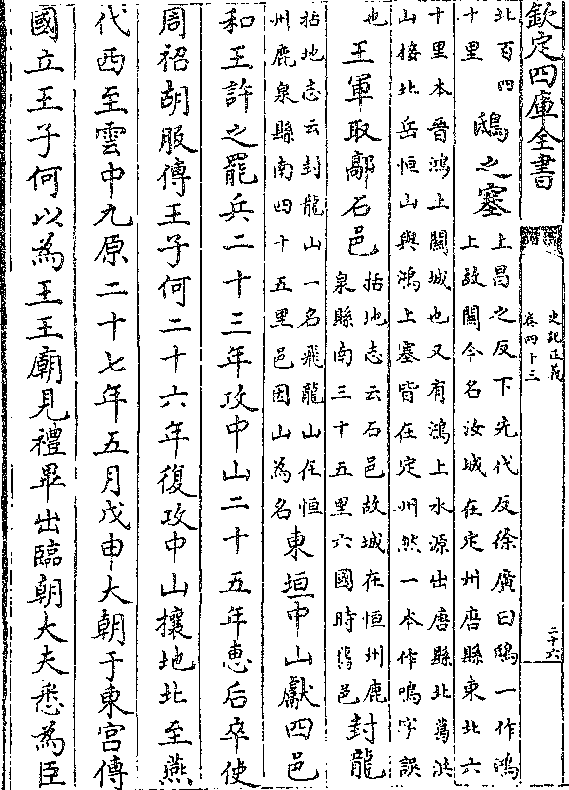 欽定四庫全書
史記正義
卷四十三
二十六
北百四
十里
鴟之塞
上昌之反下先代反徐廣曰鴟一作鴻
上故關今名汝城在定州唐縣東北六
十里本晉鴻上關城也又有鴻上水源出唐縣北葛洪
山接北岳恒山與鴻上塞皆在定州然一本作鳴字誤
也
王軍取鄗石邑
括地志云石邑故城在恒州鹿
泉縣南三十五里六國時舊邑
封龍
括地志云封龍山一名飛龍山在恒
州鹿泉縣南四十五里邑因山為名
東垣中山獻四邑
和王許之罷兵二十三年攻中山二十五年惠后卒使
周袑胡服傅王子何二十六年復攻中山攘地北至燕
代西至雲中九原二十七年五月戊申大朝于東宮傳
國立王子何以為王王廟見禮畢出臨朝大夫悉為臣